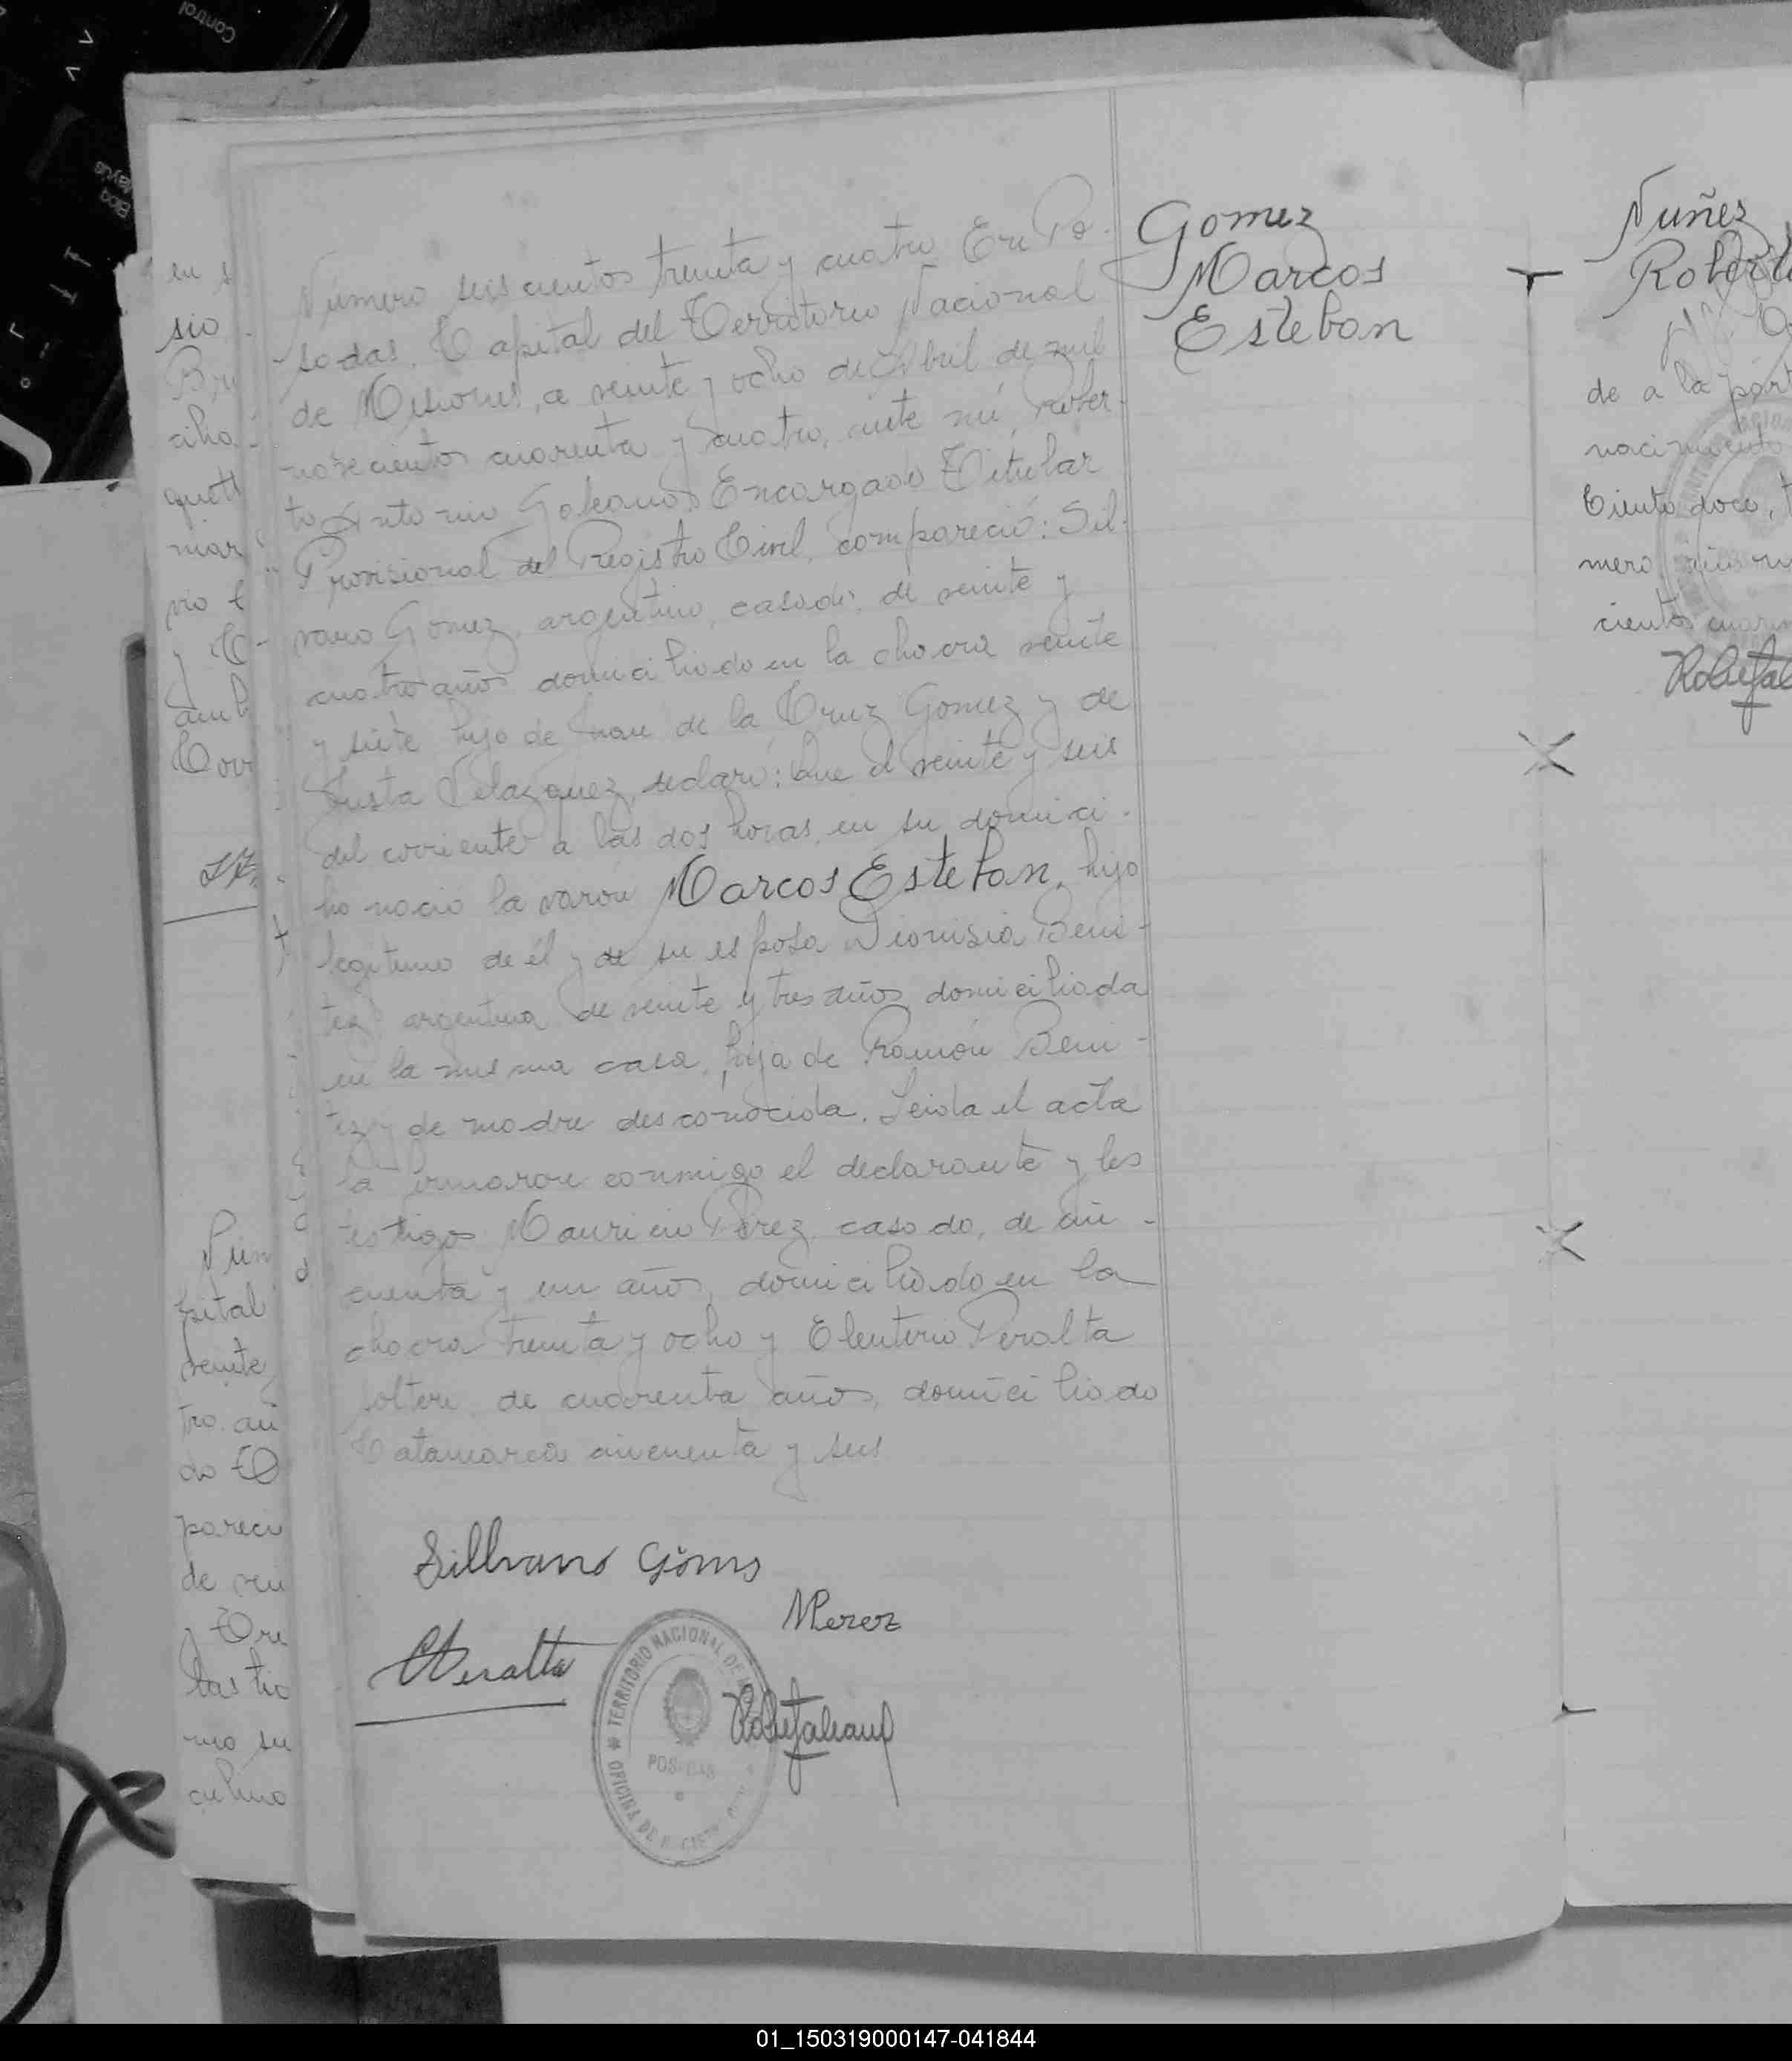 Control
Bloq
Mayús
Número seiscientos treinta y cuatro En Po-
sadas, Capital del Territorio Nacional
de Misiones, a veinte y ocho de Abril de mil
novecientos cuarenta y cuatro, ante mí, Rober-
to Antonio Galeano, Encargado Titular
Provisional del Registro Civil, compareció: Sil-
vano Gomez, argentino, casado, de veinte y
cuatro años domiciliado en la chacra veinte
y siete hijo de Juan de la Cruz Gomez y de
Justa Velazquez, declaró: Que el veinte y seis
del corriente a las dos horas, en su domici-
lio nació la varón Marcos Esteban, hijo
legítimo de él y de su esposa Dionisia Beni-
tez argentina de veinte y tres años domiciliada
en la misma casa, hija de Ramón Beni-
tez y de madre desconocida. Leída el acta
la firmaron conmigo el declarante y los
testigos Mauricio Pérez, casado, de cin-
cuenta y un años, domiciliado en la
chacra treinta y ocho y Eleuterio Peralta
soltero de cuarenta años, domiciliado
Catamarca cincuenta y seis
Gomez
Marcos
Esteban
Sillvano Góms
MPerez
Peralta
TERRITORIO NACIONAL DE
POSADAS
OFICINA DE
Nuñez
Roberto
de a la part
nacimiento
Ciento doce, t
mero
cientos cuaren
en s
sio
cilio
quett
mar
vio
y C-
amb
Corr
Núm
pital
veinte
tro. añ
do
pareci
de vein
mo su
01_150319000147-041844